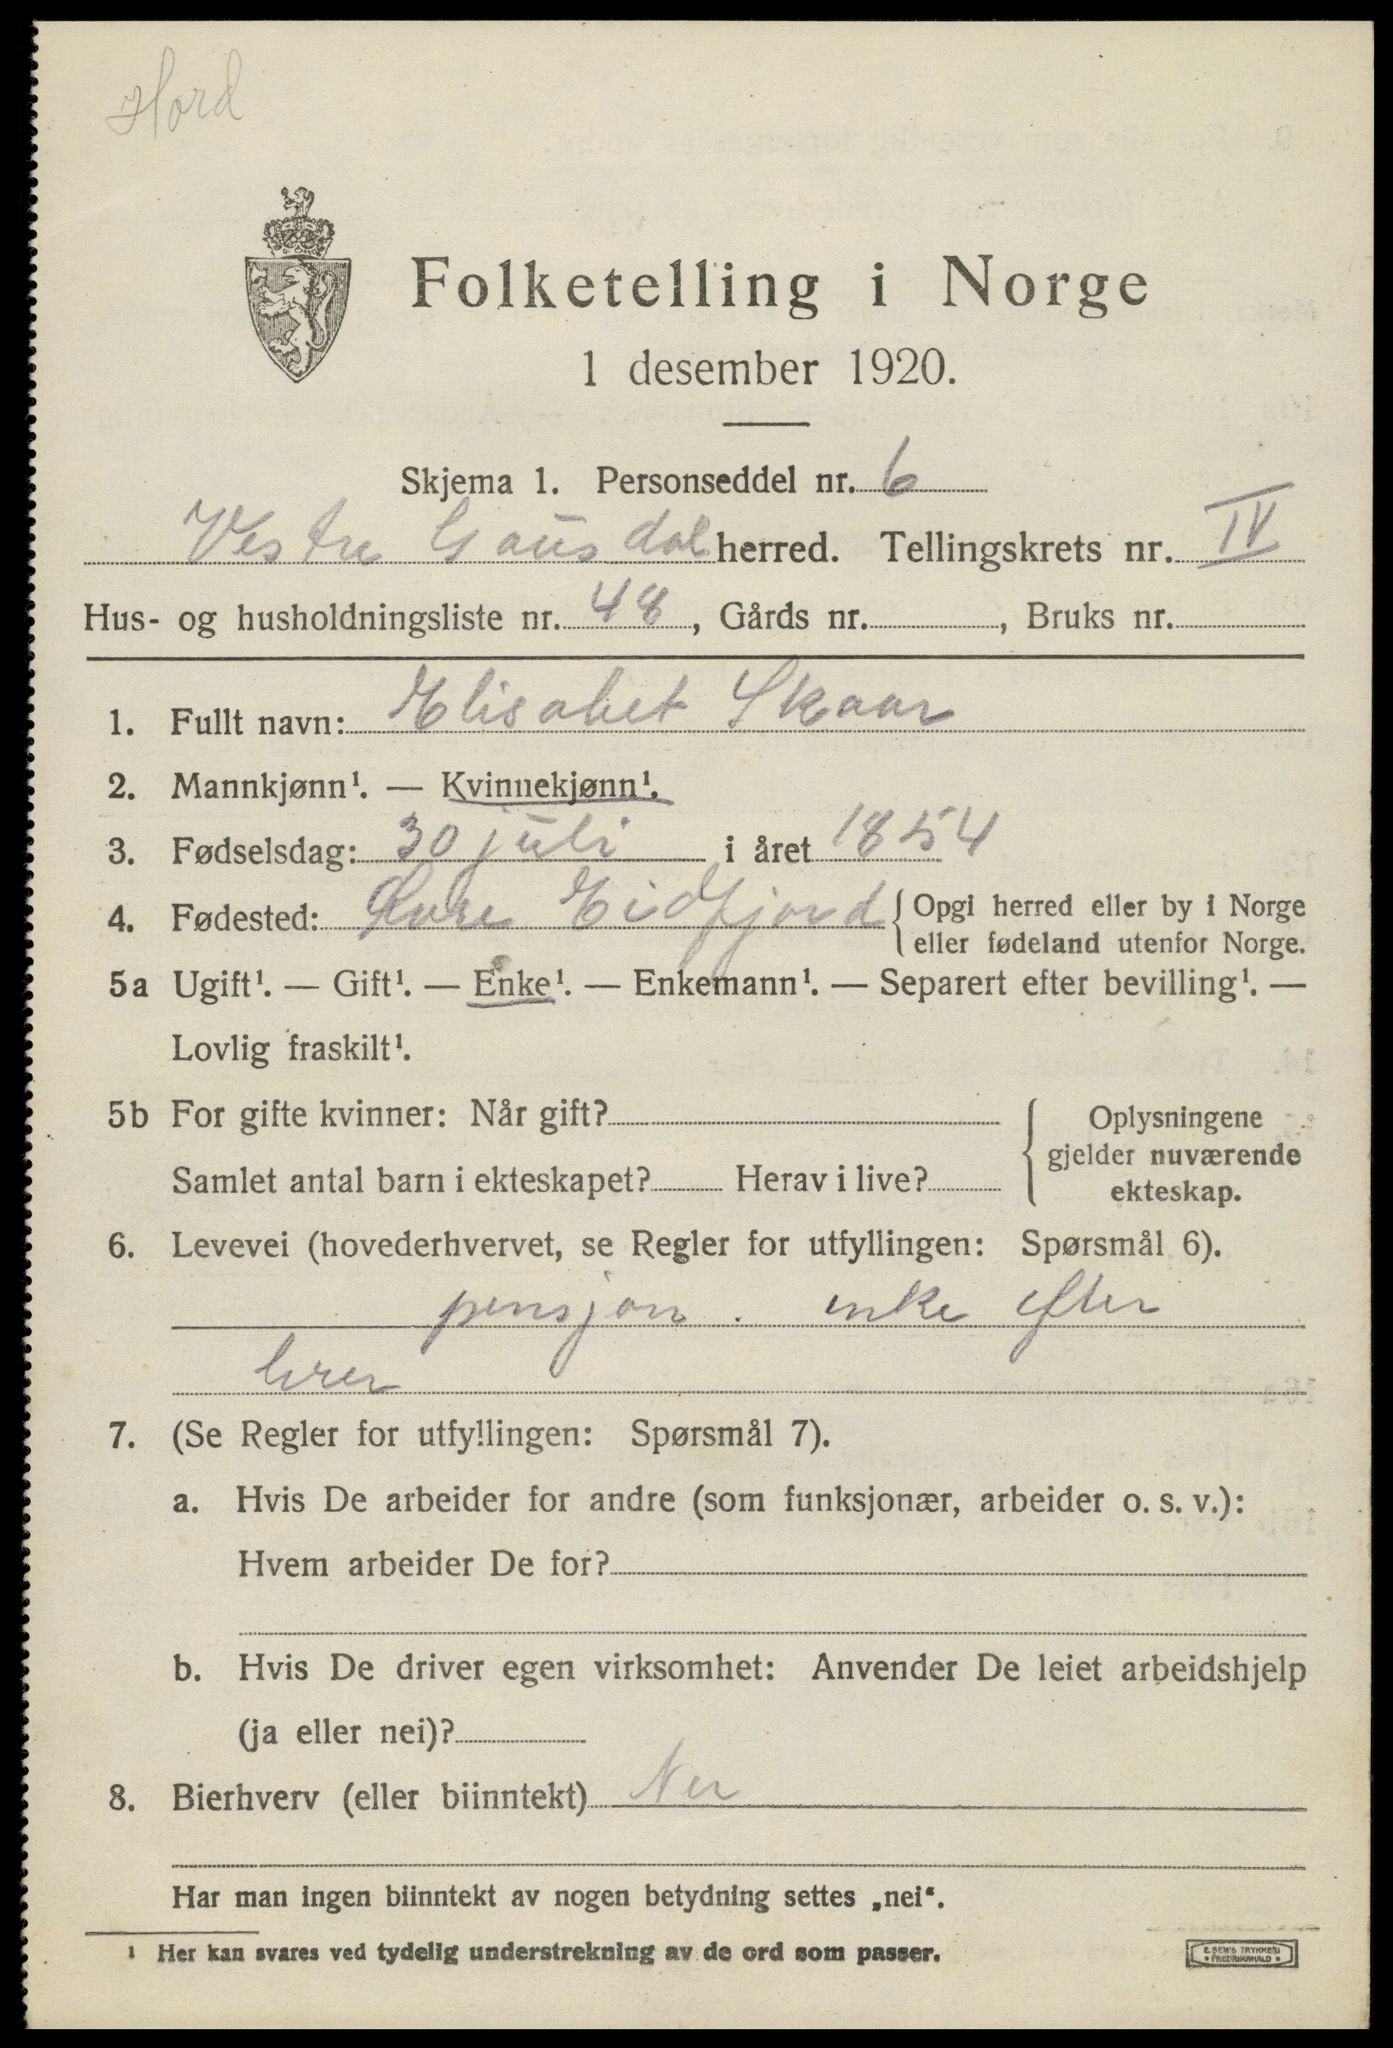 Hord
Folketelling i Norge
1 desember 1920.
Skjema 1. Personseddel nr. 6
Vestre Gausdal herred. Tellingskrets nr. IV
Hus- og husholdningsliste nr. 48, Gårds nr. , Bruks nr.
1. Fullt navn: Elisabet Skaar
2. Mannkjønn¹. — Kvinnekjønn¹.
3. Fødselsdag: 30 juli i året 1854
4. Fødested: Øvre Eidfjord { Opgi herred eller by i Norge
eller fødeland utenfor Norge.
5a Ugift¹. — Gift¹. — Enke¹. — Enkemann¹. — Separert efter bevilling¹. —
Lovlig fraskilt¹.
5b For gifte kvinner: Når gift?
Samlet antal barn i ekteskapet? Herav i live?
{ Oplysningene
gjelder nuværende
ekteskap.
6. Levevei (hovederhvervet, se Regler for utfyllingen: Spørsmål 6).
pensjon. enke efter
lærer
7. (Se Regler for utfyllingen: Spørsmål 7).
a. Hvis De arbeider for andre (som funksjonær, arbeider o. s. v.):
Hvem arbeider De for?
b. Hvis De driver egen virksomhet: Anvender De leiet arbeidshjelp
(ja eller nei)?
8. Bierhverv (eller biinntekt) Nei
Har man ingen biinntekt av nogen betydning settes „nei“.
¹ Her kan svares ved tydelig understrekning av de ord som passer.
E. SEM'S TRYKKERI
• FREDRIKSHALD •